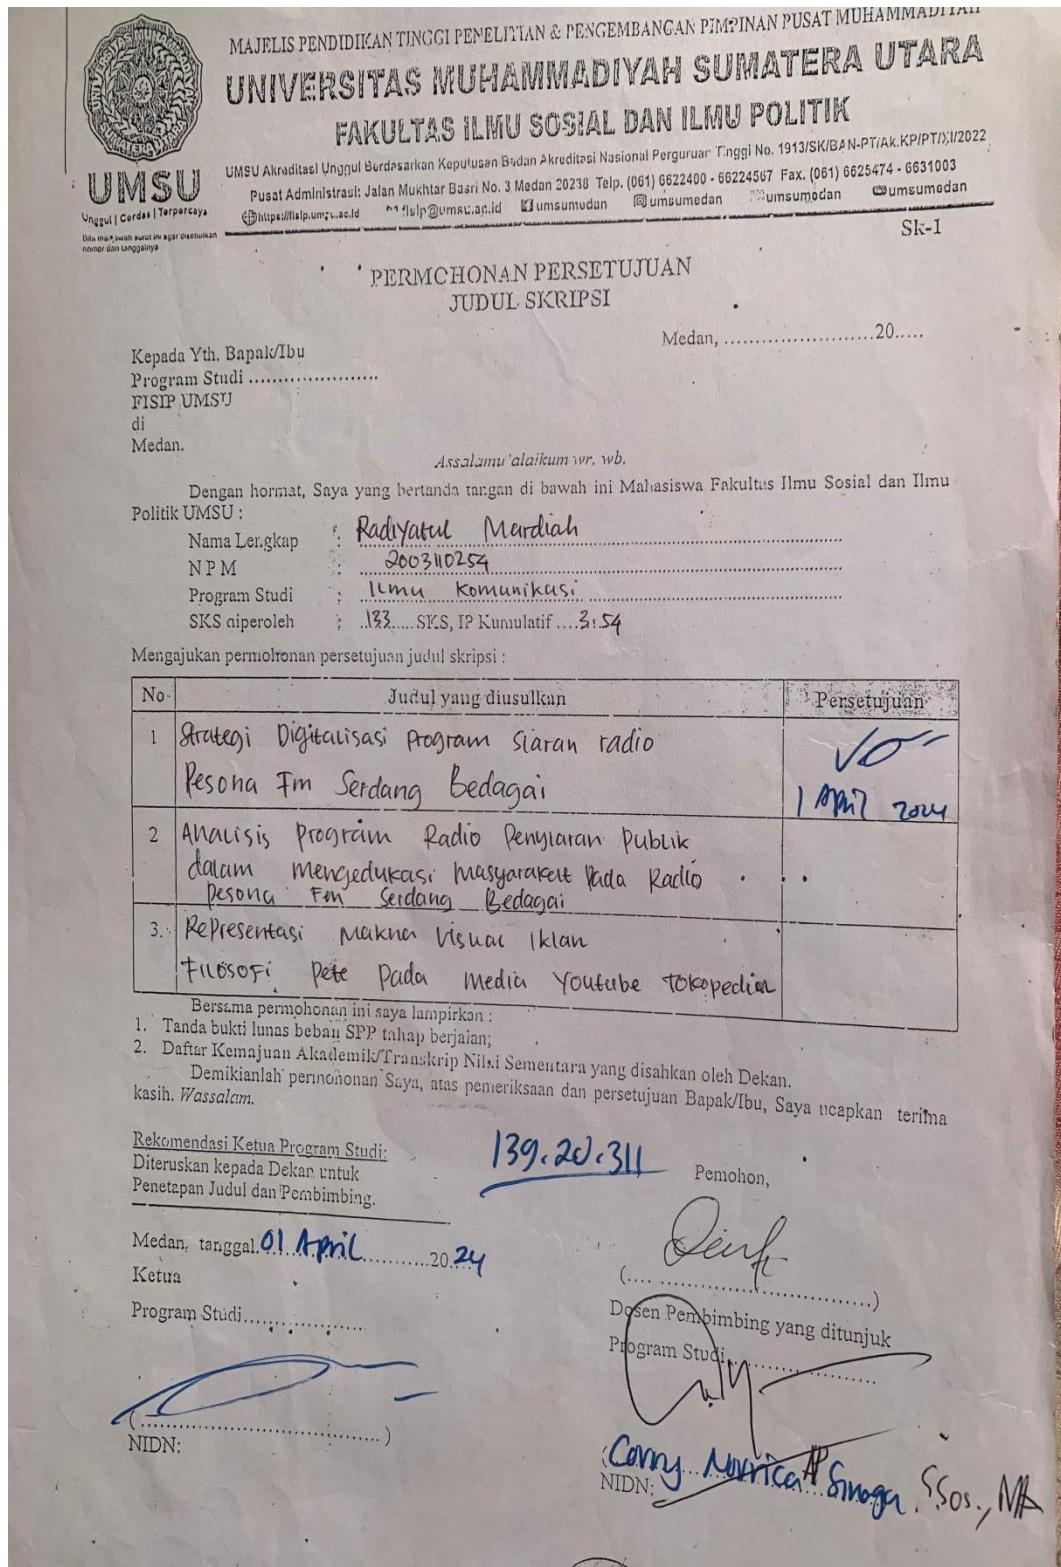 MAJELIS PENDIDIKAN TINGGI PENELITIAN & PENGEMBANGAN PIMPINAN PUSAT MUHAMMADIYAH
UNIVERSITAS MUHAMMADIYAH SUMATERA UTARA
FAKULTAS ILMU SOSIAL DAN ILMU POLITIK
UMSU Akreditasi Unggul Berdasarkan Keputusan Badan Akreditasi Nasional Perguruan Tinggi No. 1913/SK/BAN-PT/Ak.KP/PT/XI/2022
Pusat Administrasi: Jalan Mukhtar Basri No. 3 Medan 20238 Telp. (061) 6622400 - 66224567 Fax. (061) 6625474 - 6631003
https://fisip.umsu.ac.id fisip@umsu.ac.id umsumedan umsumedan umsumedan umsumedan
UMSU
Unggul | Cerdas | Terpercaya
Bila menjawab surat ini agar disebutkan
nomor dan tanggalnya
Sk-1
PERMOHONAN PERSETUJUAN
JUDUL SKRIPSI
Medan, ........................20.....
Kepada Yth. Bapak/Ibu
Program Studi ......................
FISIP UMSU
di
Medan.
Assalamu'alaikum wr. wb.
Dengan hormat, Saya yang bertanda tangan di bawah ini Mahasiswa Fakultas Ilmu Sosial dan Ilmu
Politik UMSU :
Nama Lengkap : Radiyatul Mardiah
N P M : 2003110254
Program Studi : Ilmu Komunikasi
SKS diperoleh : 133 SKS, IP Kumulatif 3.54
Mengajukan permohonan persetujuan judul skripsi :
No Judul yang diusulkan Persetujuan
1 Strategi Digitalisasi Program Siaran radio
Pesona Fm Serdang Bedagai
1 April 2024
2 Analisis Program Radio Penyiaran Publik
dalam mengedukasi Masyarakat Pada Radio
Pesona Fm Serdang Bedagai
3. Representasi Makna Visual Iklan
Filosofi Pete Pada Media Youtube Tokopedia
Bersama permohonan ini saya lampirkan :
1. Tanda bukti lunas beban SPP tahap berjalan;
2. Daftar Kemajuan Akademik/Transkrip Nilai Sementara yang disahkan oleh Dekan.
Demikianlah permohonan Saya, atas pemeriksaan dan persetujuan Bapak/Ibu, Saya ucapkan terima
kasih. Wassalam.
Rekomendasi Ketua Program Studi:
Diteruskan kepada Dekan untuk
Penetapan Judul dan Pembimbing.
139.20.311
Pemohon,
Medan, tanggal 01 April 2024
Ketua
Program Studi....................
(....................................)
NIDN:
(....................................)
Dosen Pembimbing yang ditunjuk
Program Studi....................
Corry Novrica AP Sinaga. S.Sos., MA
NIDN: